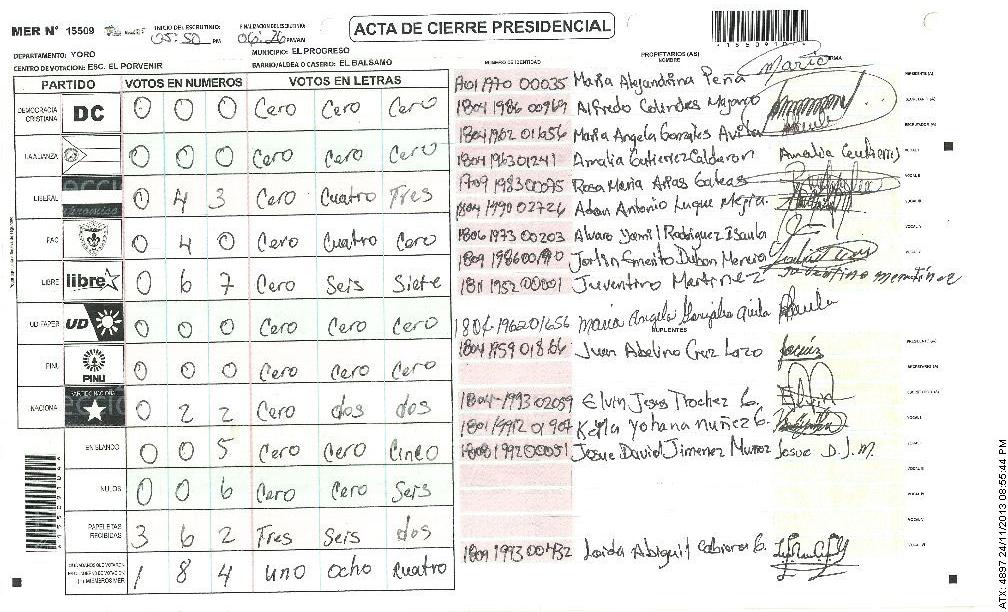 MER Nº 15509
INICIO DEL ESCRUTINIO:
05:50 PM
FINALIZACION DEL ESCRUTINIO:
06:26 PM/AM
ACTA DE CIERRE PRESIDENCIAL
DEPARTAMENTO: YORO
MUNICIPIO: EL PROGRESO
CENTRO DE VOTACION: ESC. EL PORVENIR
BARRIO/ALDEA O CASERIO: EL BALSAMO
PARTIDO VOTOS EN NUMEROS VOTOS EN LETRAS
DEMOCRACIA CRISTIANA DC 0 0 0 Cero Cero Cero
LA ALIANZA 0 0 0 Cero Cero Cero
LIBERAL 0 4 3 Cero Cuatro Tres
PAC 0 4 0 Cero Cuatro Cero
LIBRE libre 0 6 7 Cero Seis Siete
UD FAPER UD 0 0 0 Cero Cero Cero
PINU PINU 0 0 0 Cero Cero Cero
NACIONAL 0 2 2 Cero dos dos
EN BLANCO 0 0 5 Cero Cero Cinco
NULOS 0 0 6 Cero Cero Seis
PAPELETAS RECIBIDAS 3 6 2 Tres Seis dos
1 8 4 uno ocho cuatro
NUMERO DE IDENTIDAD PROPIETARIOS (AS) NOMBRE FIRMA
00035 Maria Alejandrina Peña Maria PRESIDENTE (A)
1804 1986 00969 Alfredo Colindres
1804 1962 01656 Maria Angela Gonzales Avila
1804 1963 01241 Amalia Gutierrez Calderon Amalia Gutierrez
1709 1983 00075 Rosa Maria Arias
1804 1990 02726 Adan Antonio Luque Mejia
1806 1973 00203 Alvaro Yamil Rodriguez Isaula
Jorlin Emerito Dubon
1811 1952 00001 Juventino Martinez
1804-1962 01656 Maria Angela Gonzales Avila
SUPLENTES
1804 1959 01866 Juan Abelino Cruz Lazo
1804-1993 02059 Elvin Jesus Trochez G. Elvin
01907 Keila Yohana Nuñez G.
1992 00051 Josue David Jimenez Muñoz Josue D. J. M.
1804 1993 00432 Loida Abigail Cabrera G.
ATX: 4897 24/11/2013 08:55:44 PM